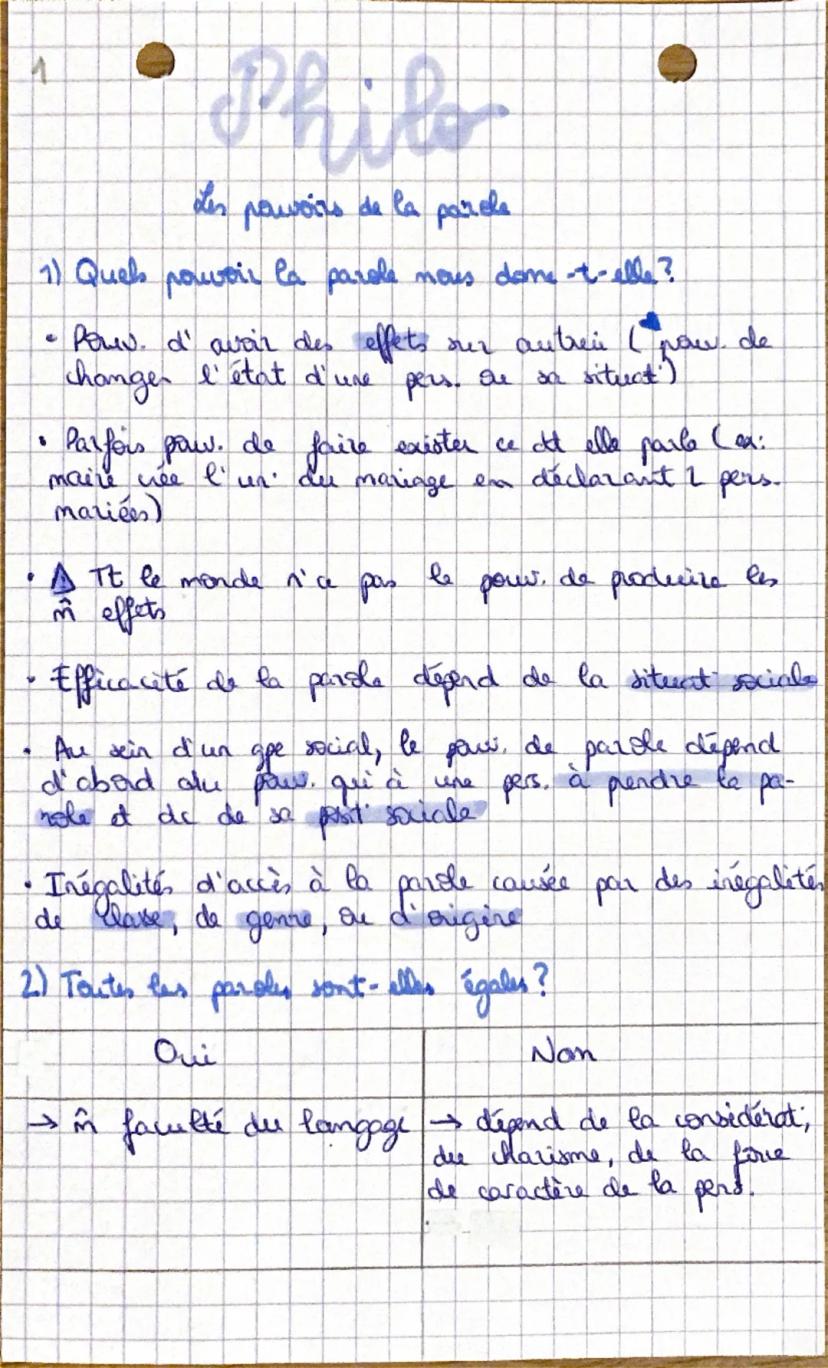 1
Philo
Les pouvoirs de la parole
1) Quels pouvoir la parole nous donne-t-elle?
• Pouv. d'avoir des effets sur autrui (pouv. de
changer l'état d'une pers. ou sa situat°)
• Parfois pouv. de faire exister ce dt elle parle (ex:
maire crée l'un° du mariage en déclarant 2 pers.
mariées)
• ⚠ Tt le monde n'a pas le pouv. de produire les
m̂ effets
• Efficacité de la parole dépend de la situat° sociale
• Au sein d'un gpe social, le pouv. de parole dépend
d'abord du pouv. qu'à une pers. à prendre la pa-
role et dc de sa posit° sociale
• Inégalités d'accès à la parole causée par des inégalités
de classe, de genre, ou d'origine
2) Toutes les paroles sont-elles égales?
Oui Non
→ m̂ faculté du langage → dépend de la considérat°,
du charisme, de la force
de caractère de la pers.